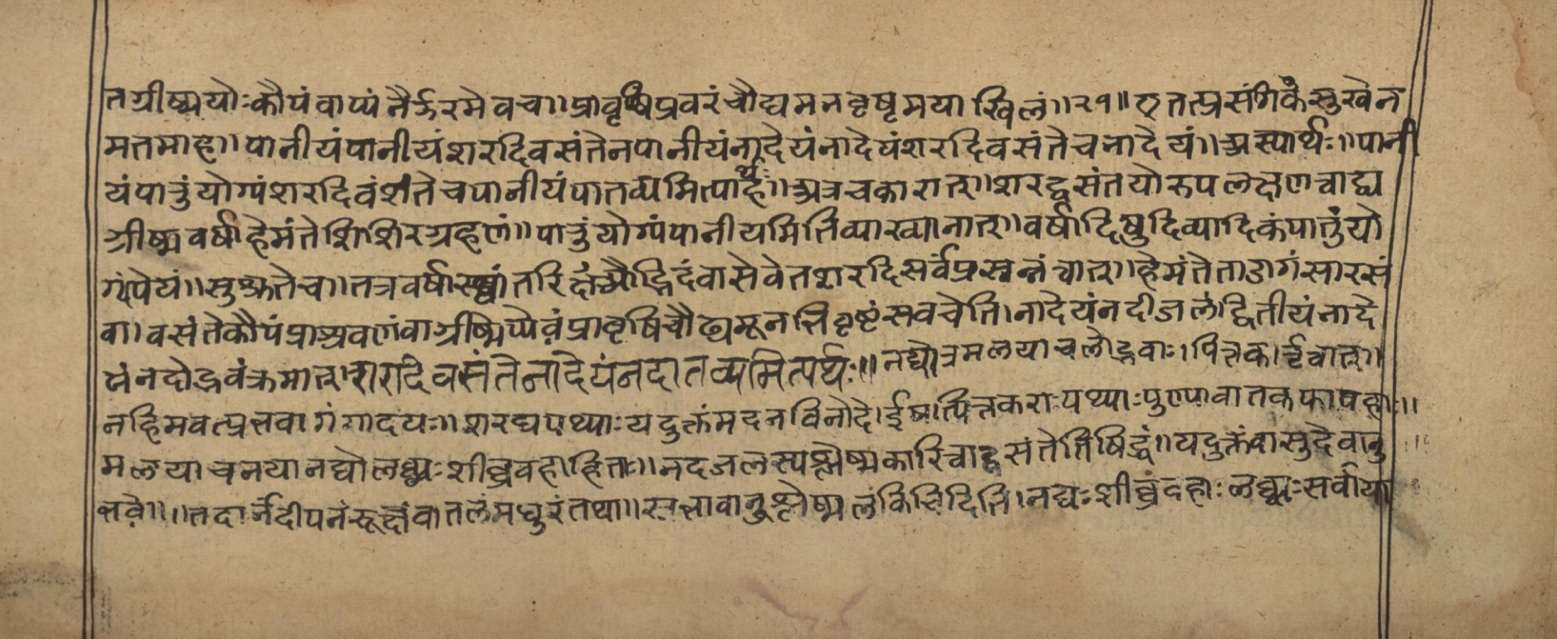 तग्रीष्मयोः कौपं वाप्यं नैर्ऊरमेवच॥ प्रावृषिप्रवरं चौद्यमनवृषृमयाखिलं॥२१॥ एतत्प्रसंगिकं सुखेन
मतमाह॥ पानीयंपानीयंशरदिवसंतेनपानीयंनादेयंनादेयंशरदिवसंतेचनादेयं॥ अस्यार्थः॥ पानी
यंपातुंयोग्यंशरदिवंशंतेचपानीयंपातव्यमित्यार्थः॥ अत्रचकारात्॥ शरद्वसंतयोरुपलक्षणत्वाद्य
ग्रीष्मवर्षाहेमंतेशिशिरग्रहणं॥ पातुंयोग्यंपानीयमितिव्याख्यानात्॥ वर्षादिषुदिव्यादिकंपातुंयो
ग्यंपेयं॥ सुश्रुतेच॥ तत्रवर्षास्वांतरिक्षंऔद्भिदंवासेवेतशरदिसर्वंप्रसन्नत्वात्॥ हेमंतेताडागंसारसं
वा। वसंतेकौपंप्राश्रवणंवाग्रीष्मेप्येवंप्रावृषिचौढ्यमूनत्तिवृष्टंसवचेति। नादेयंनदीजलंद्वितीयंनादे
यंनदोद्भवंक्रमात्। शरदिवसंतेनादेयंनदातव्यमित्यर्थः॥ नद्योत्रमलयाचलोद्भवाः। पित्तकार्तृत्वात्॥
नहिमवत्प्रत्तवागंगादयः॥ शरद्यपथ्याः यदुक्तंमदनविनोदे। ईषत्पित्तकराः पथ्याः पुण्यावातकफापहाः॥
मलयाचनयानद्योलघ्व्यः शीघ्रवहाहिताः॥ नदजलस्यश्लेष्मकारित्वाद्वसंतेतिषिद्धं॥ यदुक्तंवासुदेवानु
भवे॥॥ तदार्नंदीपनंरूक्षंवातलंमधुरंतथा॥ सत्तावानुश्लेष्मलंकिंचिदिति। नद्यः शीघ्रंवहाः लघ्व्यः सर्वाया